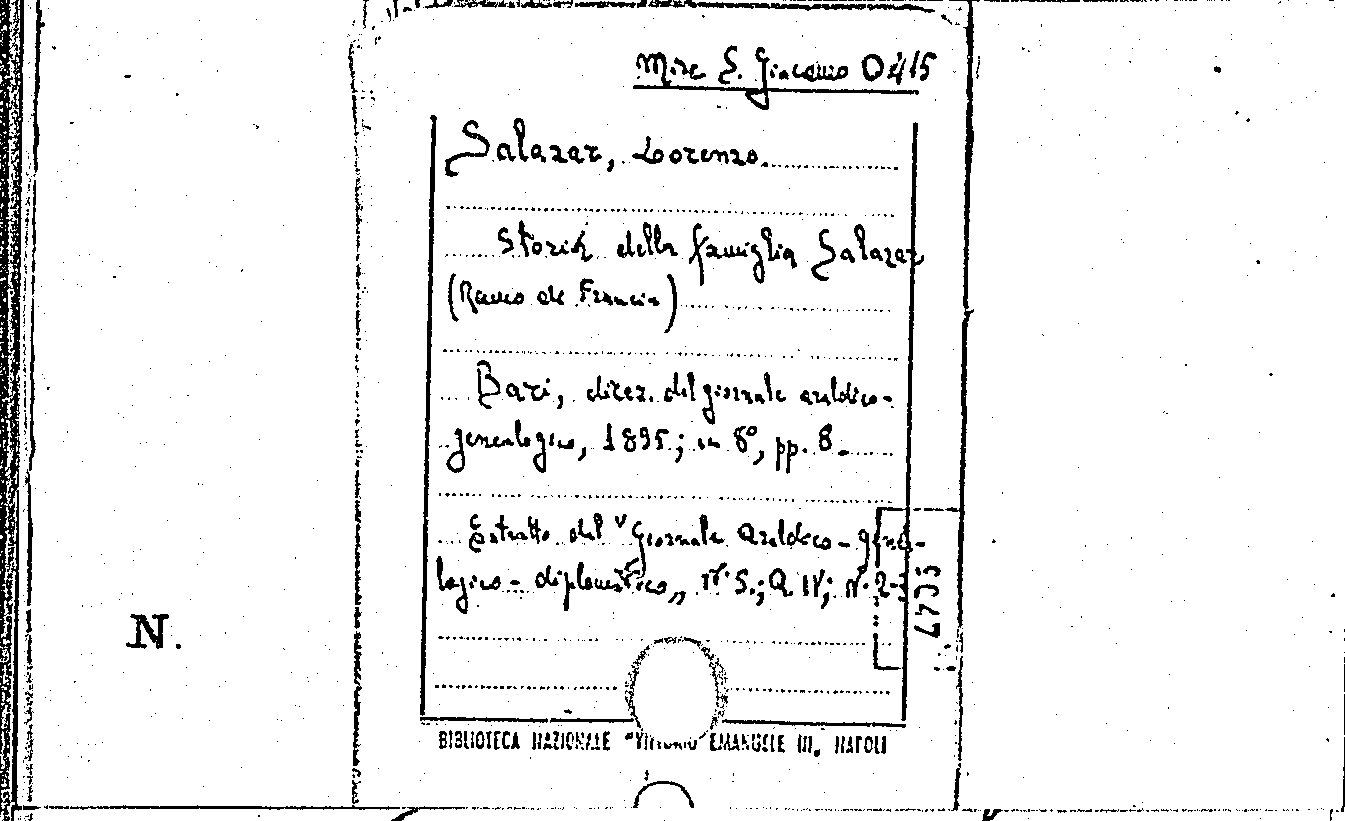 Misc. S. Giacomo D 415
Salazar, Lorenzo.
Storia della famiglia Salazar
(Ramo de Francia)
Bari, direz. del giornale araldico-
genealogico, 1895; in 8°, pp. 8.
Estratto dal "Giornale Araldico-genea-
logico-diplomatico„, N. S.; A. IV; N. 2-3
N.
BIBLIOTECA NAZIONALE "VITTORIO EMANUELE III„ NAPOLI